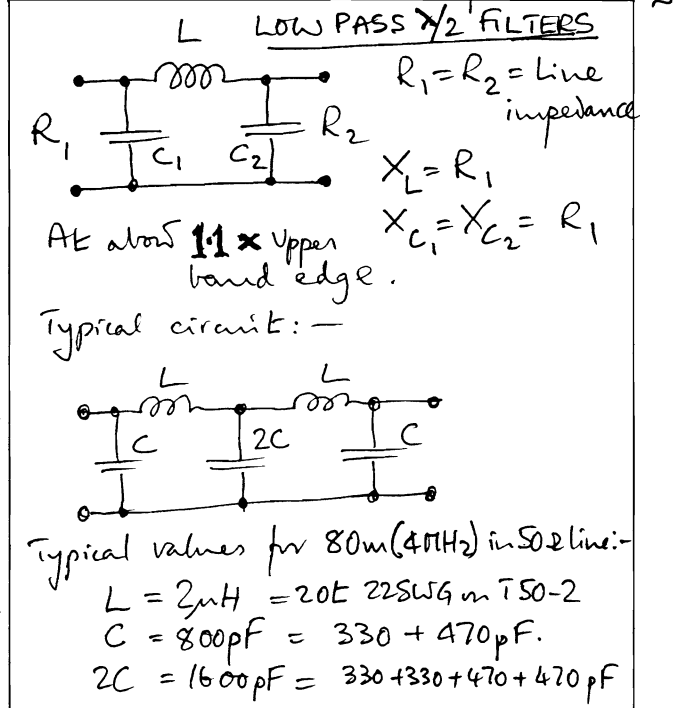 LOW PASS λ/2 FILTERS
L
R₁ = R₂ = Line
impedance
R₁ C₁ C₂ R₂
X_L = R₁
X_C₁ = X_C₂ = R₁
At about 1.1 x Upper
band edge.
Typical circuit: —
L L
C 2C C
Typical values for 80m (4MHz) in 50Ω line:-
L = 2μH = 20t 22SWG on T50-2
C = 800pF = 330 + 470pF.
2C = 1600pF = 330+330+470+470pF